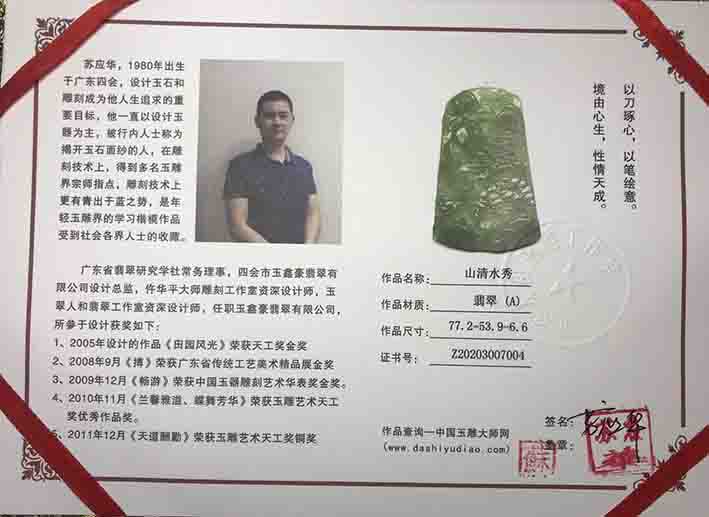 苏应华，1980年出生
于广东四会，设计玉石和
雕刻成为他人生追求的重
要目标，他一直以设计玉
器为主，被行内人士称为
揭开玉石面纱的人，在雕
刻技术上，得到多名玉雕
界宗师指点，雕刻技术上
更有青出于蓝之势，是年
轻玉雕界的学习楷模作品
受到社会各界人士的收藏。
广东省翡翠研究学社常务理事，四会市玉鑫豪翡翠有
限公司设计总监，仵华平大师雕刻工作室资深设计师，玉
翠人和翡翠工作室资深设计师，任职玉鑫豪翡翠有限公司，
所参于设计获奖如下：
1、2005年设计的作品《田园风光》荣获天工奖金奖
2、2008年9月《搏》荣获广东省传统工艺美术精品展金奖
3、2009年12月《畅游》荣获中国玉器雕刻艺术华表奖金奖。
4、2010年11月《兰馨雅道、蝶舞芳华》荣获玉雕艺术天工
奖优秀作品奖。
5、2011年12月《天道酬勤》荣获玉雕艺术天工奖铜奖
以刀琢心，以笔绘意。
境由心生，性情天成。
作品名称： 山清水秀
作品材质： 翡翠（A）
作品尺寸： 77.2-53.9-6.6
证书号： Z20203007004
作品查询—中国玉雕大师网
(www.dashiyudiao.com)
签名：
盖章：